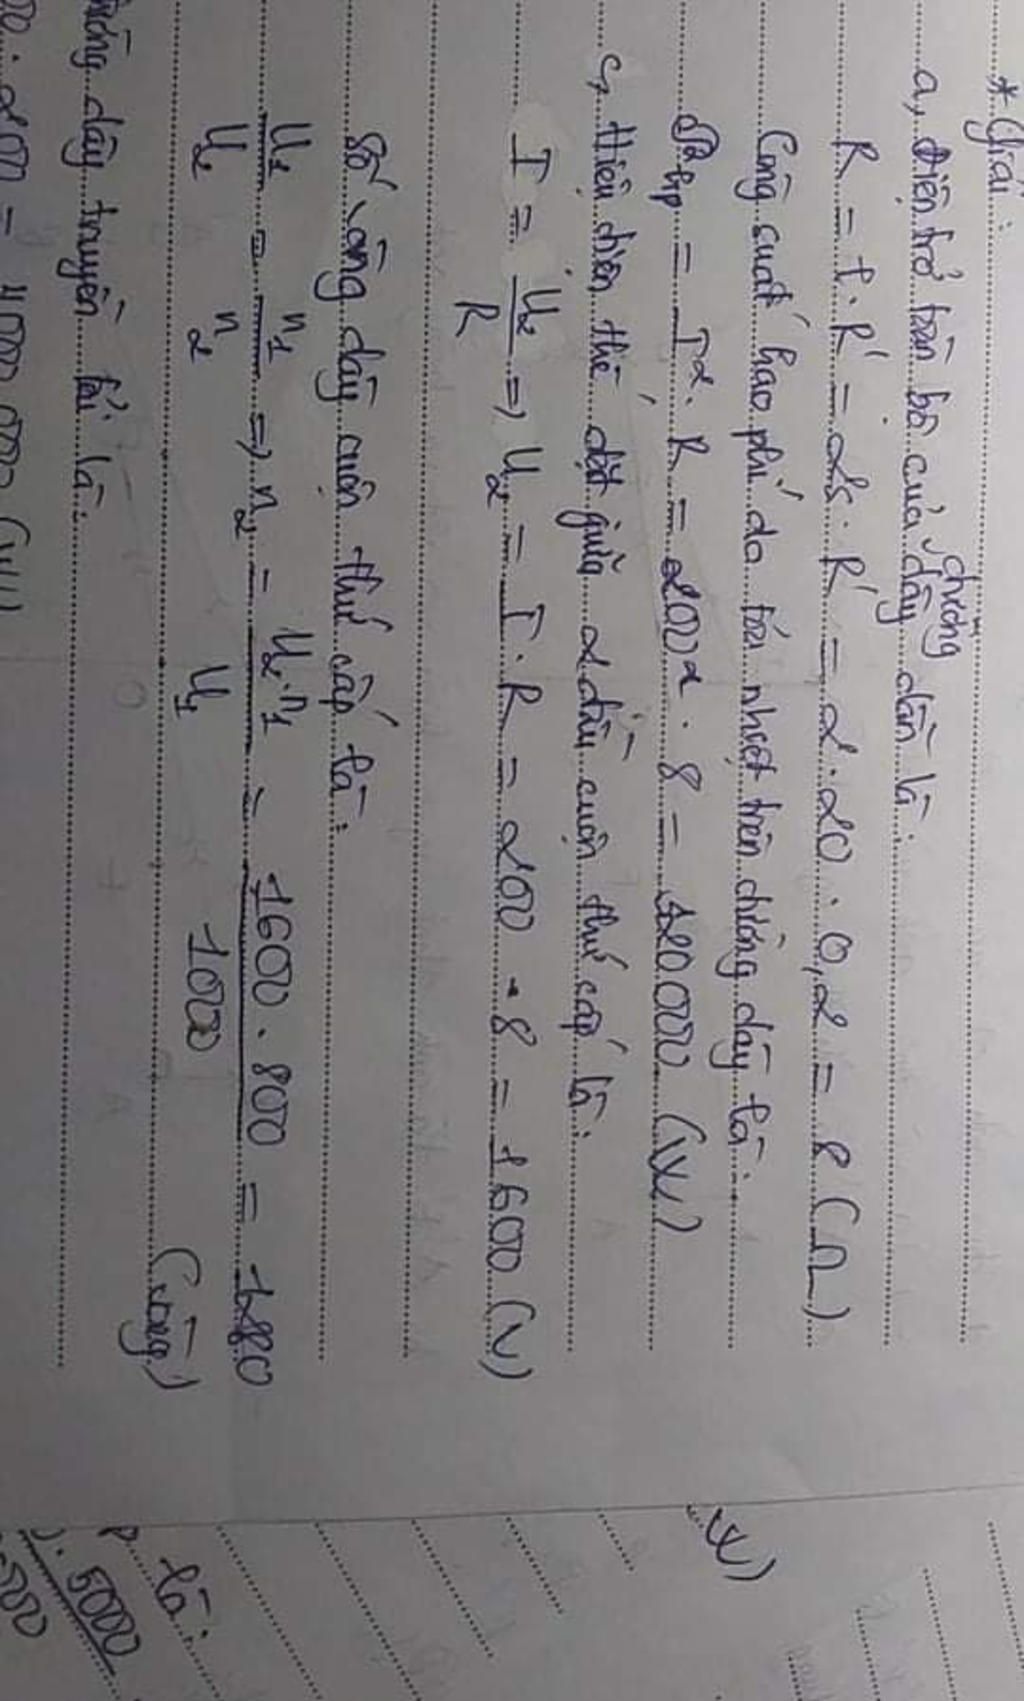 * Giải:
a, Điện trở toàn bộ của đường dây dẫn là:
R = l . R' = 2s . R' = 2 . 20 . 0,2 = 8 (Ω)
Công suất hao phí do tỏa nhiệt trên đường dây là:
P hp = I² . R = 200² . 8 = 320000 (W)
c, Hiệu điện thế đặt giữa 2 đầu cuộn thứ cấp là:
I = U₂ / R => U₂ = I . R = 200 . 8 = 1600 (V)
Số vòng dây cuộn thứ cấp là:
U₁ / U₂ = n₁ / n₂ => n₂ = U₂ . n₁ / U₁ = 1600 . 800 / 1000 = 1280
(vòng)
dây truyền tải là:
200 = 4000 000 (W)
W)
là:
. 5000